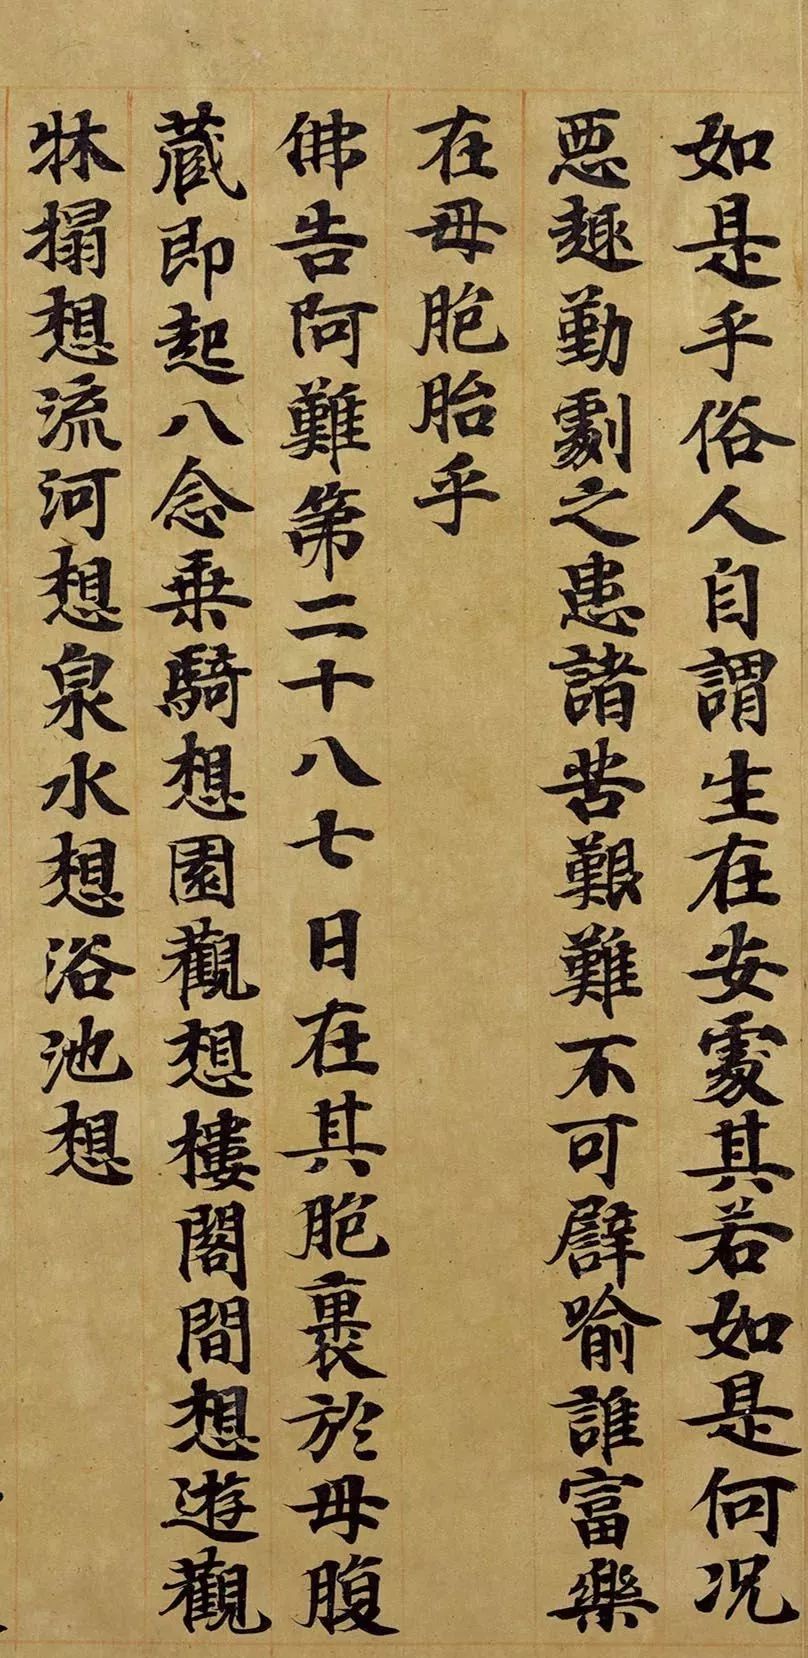 如是乎俗人自謂生在安處其若如是何況
惡趣勤劇之患諸苦艱難不可譬喻誰當樂
在母胞胎乎
佛告阿難第二十八七日在其胞裹於母腹
藏即起八念乗騎想園觀想樓閣間想遊觀
牀榻想流河想泉水想浴池想